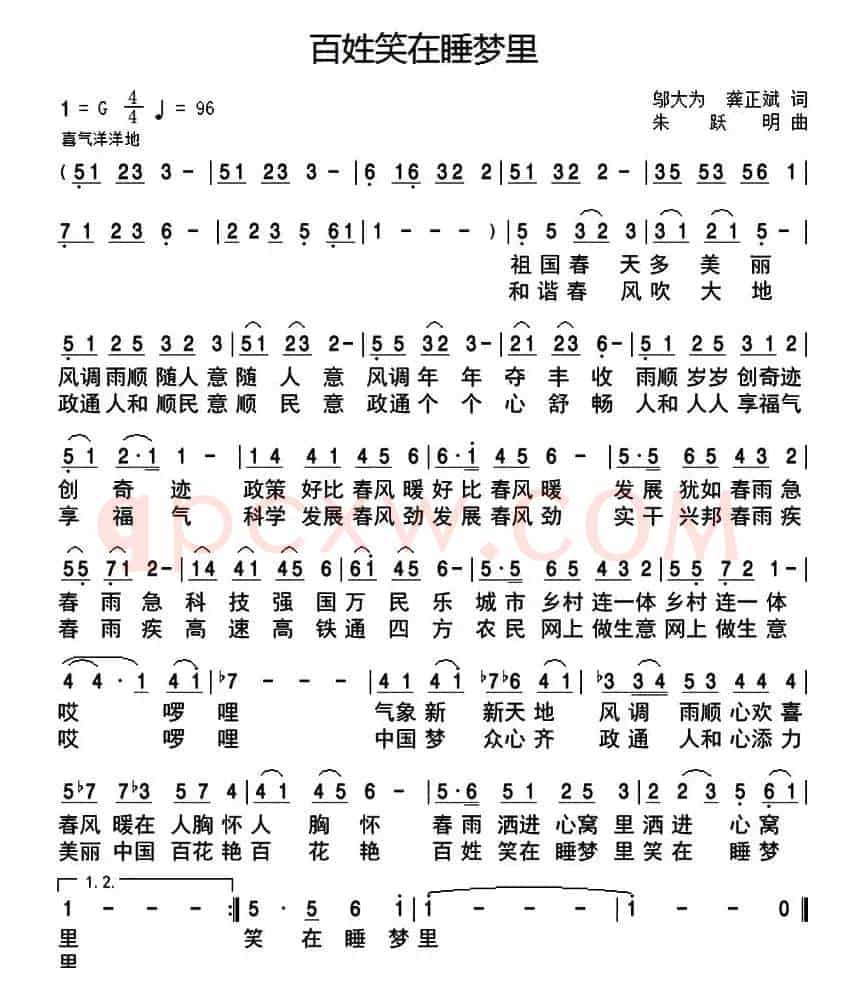 百姓笑在睡梦里
1 = G 4/4 ♩ = 96
邬大为 龚正斌 词
朱 跃 明 曲
喜气洋洋地
( 51 23 3 - | 51 23 3 - | 6 16 32 2 | 51 32 2 - | 35 53 56 1 |
71 23 6 - | 223 5 61 | 1 - - - ) | 5 5 32 3 | 31 21 5 - |
祖国春 天多 美 丽
和谐春 风吹 大 地
51 25 32 3 | 51 23 2 - | 55 32 3 - | 21 23 6 - | 51 25 31 2 |
风调雨顺 随人 意 随 人 意 风调 年 年 夺 丰 收 雨顺 岁岁 创奇迹
政通人和 顺民 意 顺 民 意 政通 个 个 心 舒 畅 人和 人人 享福气
51 2·1 1 - | 14 41 45 6 | 6·1 45 6 - | 5·5 65 43 2 |
创 奇 迹 政策 好比 春风 暖 好 比 春风 暖 发 展 犹如 春雨 急
享 福 气 科学 发展 春风 劲 发 展 春风 劲 实 干 兴邦 春雨 疾
55 71 2 - | 14 41 45 6 | 61 45 6 - | 5·5 65 432 | 55 72 1 - |
春 雨 急 科 技 强 国 万 民 乐 城市 乡村 连一体 乡村 连一 体
春 雨 疾 高 速 高 铁 通 四 方 农民 网上 做生意 网上 做生 意
4 4 · 1 41 | ♭7 - - - | 41 4 41 | ♭7♭6 45 1 - | ♭3 34 53 34 4 |
哎 啰 哩 气象 新 新天 地 风 调 雨顺 心欢 喜
哎 啰 哩 中国 梦 众心 齐 政 通 人和 心添 力
5♭7 7♭3 57 4 | 41 45 6 - | 5·6 51 25 3 | 2 23 5 61 |
春风 暖在 人胸 怀 人 胸 怀 春 雨 洒进 心窝 里 洒 进 心 窝
美丽 中国 百花 艳 百 花 艳 百 姓 笑在 睡梦 里 笑 在 睡 梦
1. 2.
1 - - - :‖ 5 · 5 6 1 | 1 - - - | 1 - - 0 ‖
里 笑 在 睡 梦 里
里
qpcxw.com